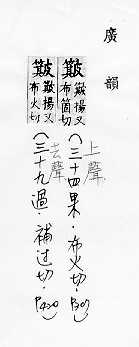 廣韻
簸 簸揚又布箇切
上聲
(三十四果．布火切．
簸 簸揚又布火切
去聲
(三十九過．補过切．P420)